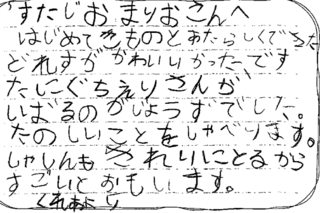 すたじおまりおさんへ
はじめてきものとあたらしくできた
どれすがかわいいかったーです
たにぐちえりさんが
いばるのがじょうずでした。
たのしいことをしゃべります。
しゃしんもきれいにとるから
すごいとおもいます。
くれあより